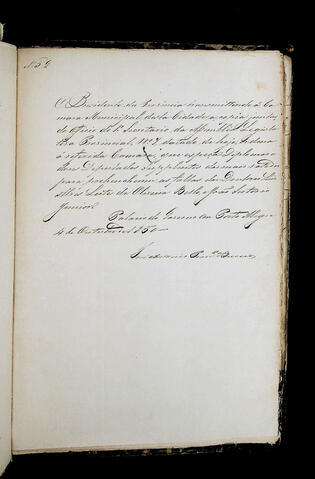 Nº 52
O Presidente da Provincia transmittindo á Ca-
mara Municipal desta Cidade a copia junta
do Officio do 1º Secretario da Assembléa Legisla-
tiva Provincial, Nº 7 datado de hoje, ordena
á referida Camara que expeça Diplomas
dous Deputados Supplentes
para preencherem as faltas dos Doutores
Leite de Oliveira Bello e João
Junior.
Palacio do Governo em Porto Alegre
4 de Outubro de 1850